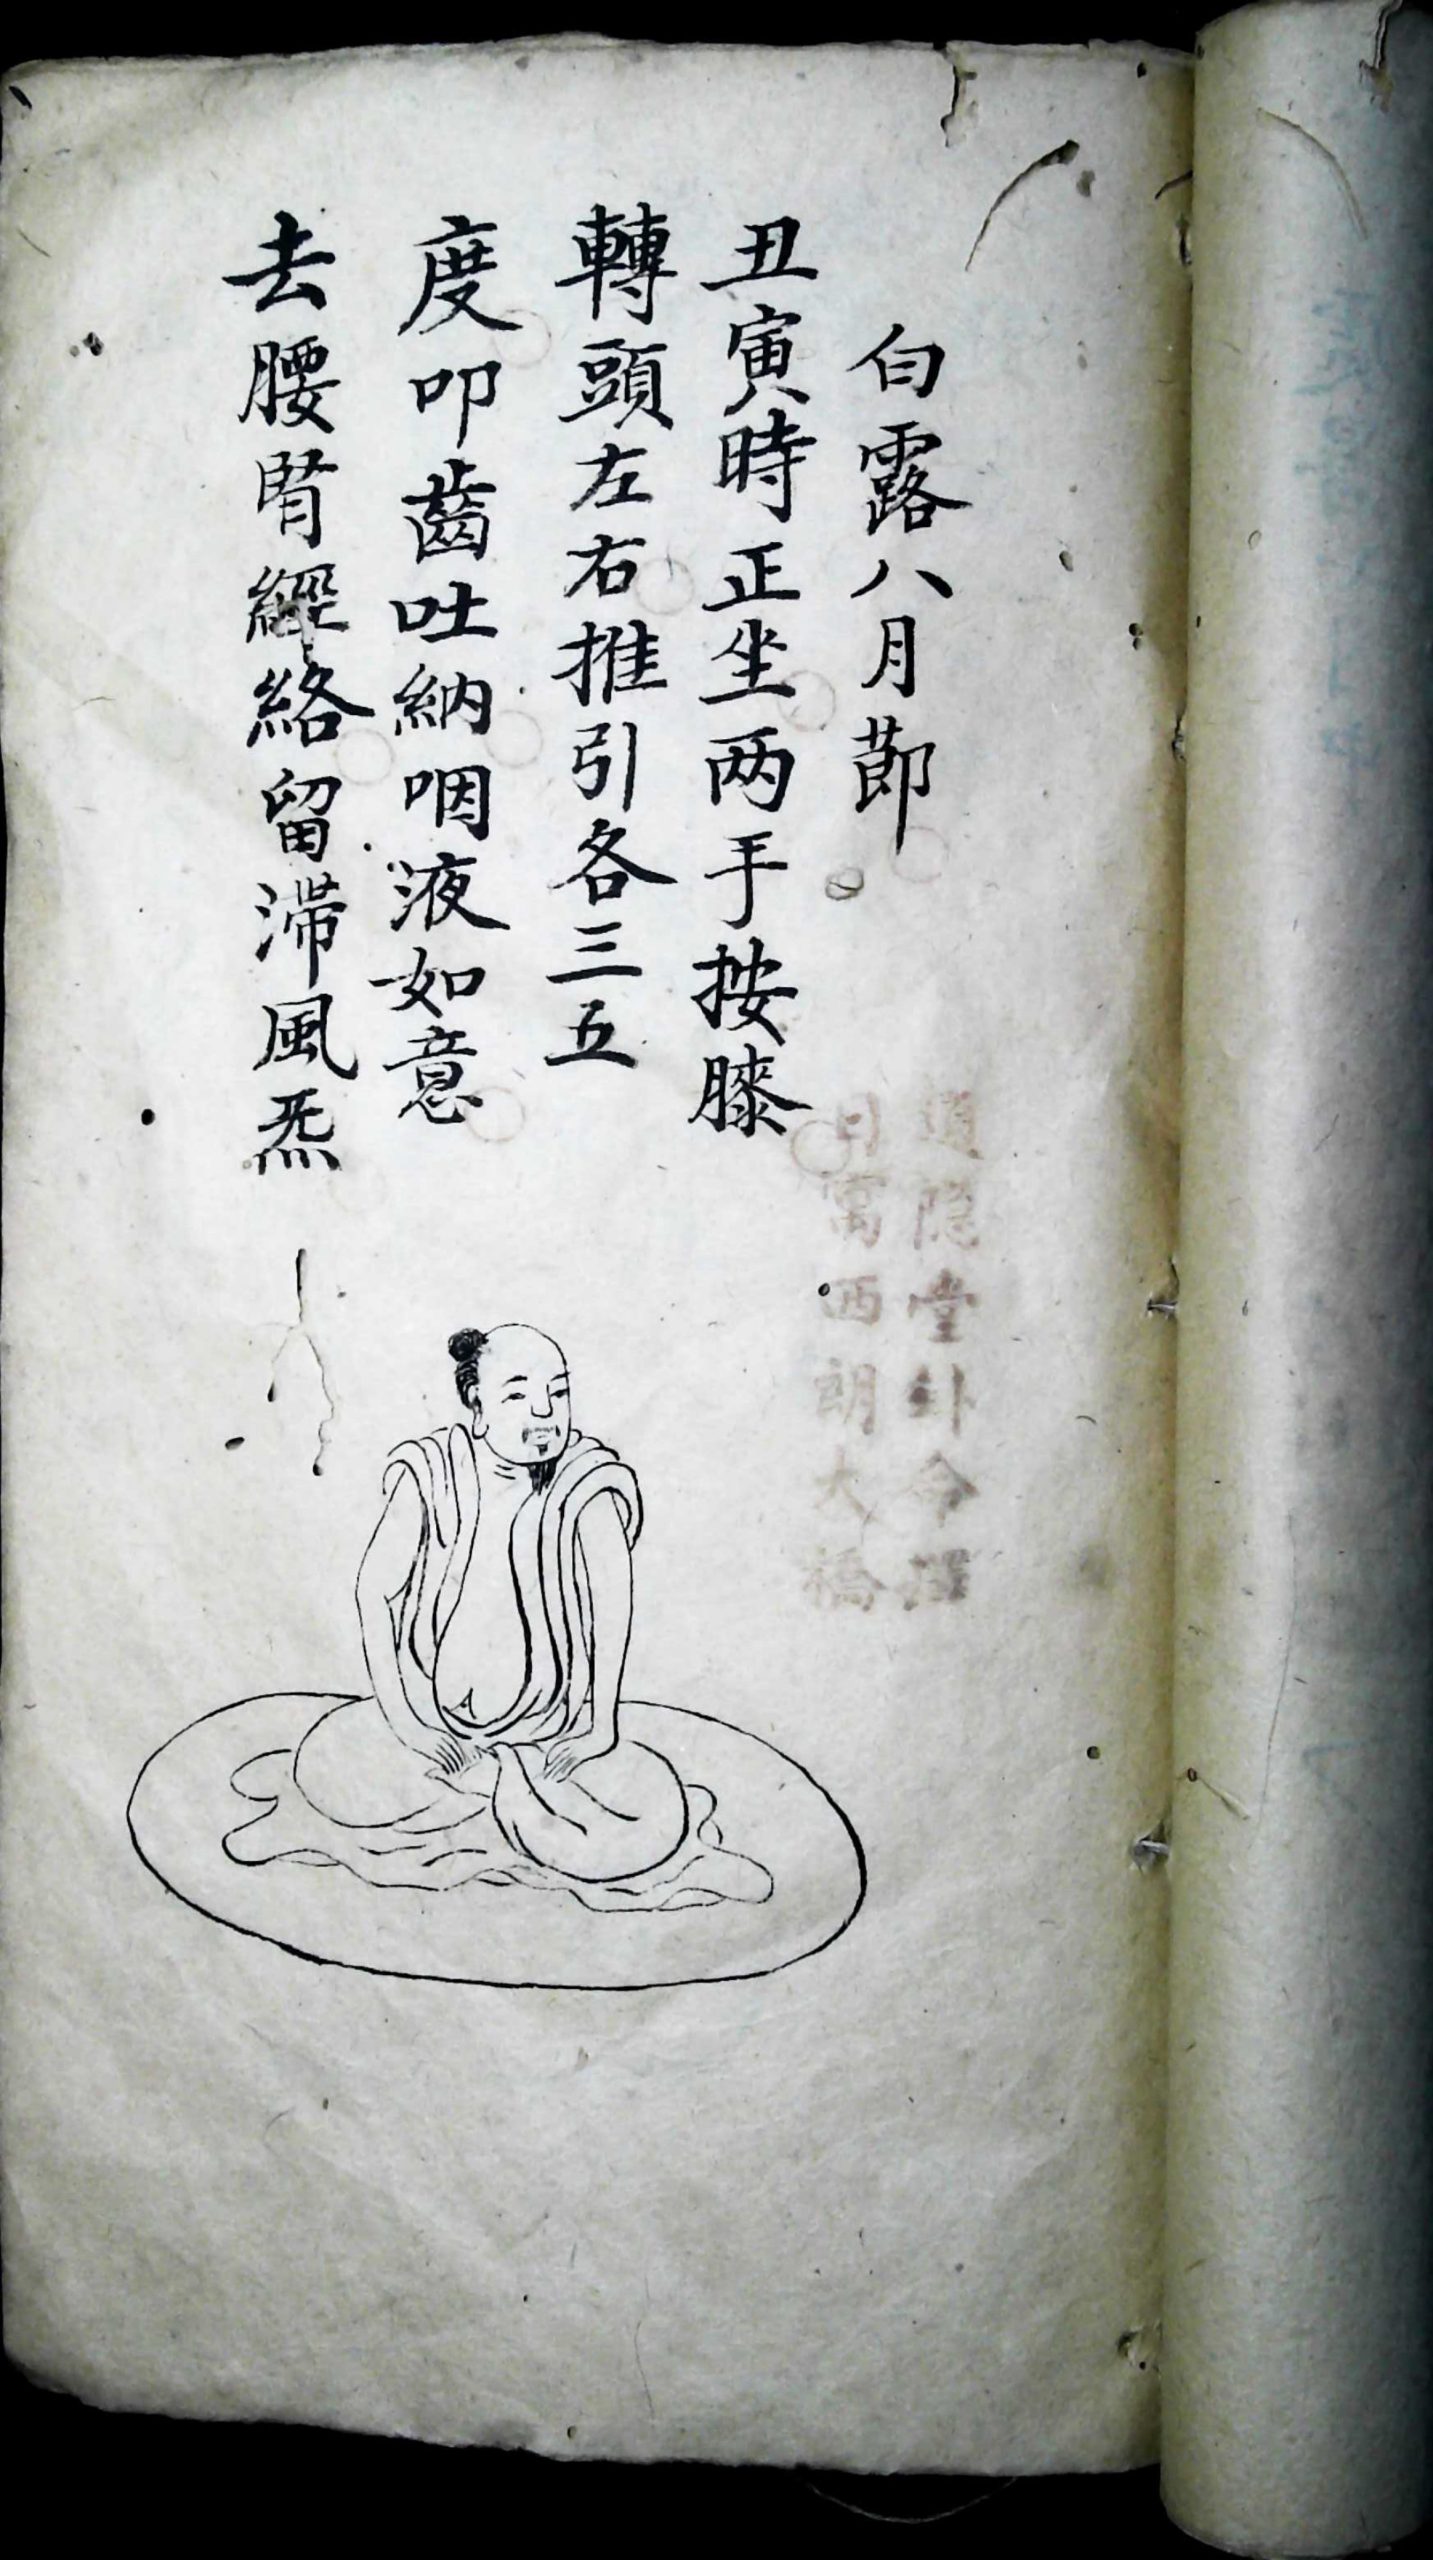 白露八月節
丑寅時正坐两手按膝
轉頭左右推引各三五
度叩齒吐納咽液如意
去腰腎經絡留滯風炁
隱堂卦命擇
日寓西朗大橋